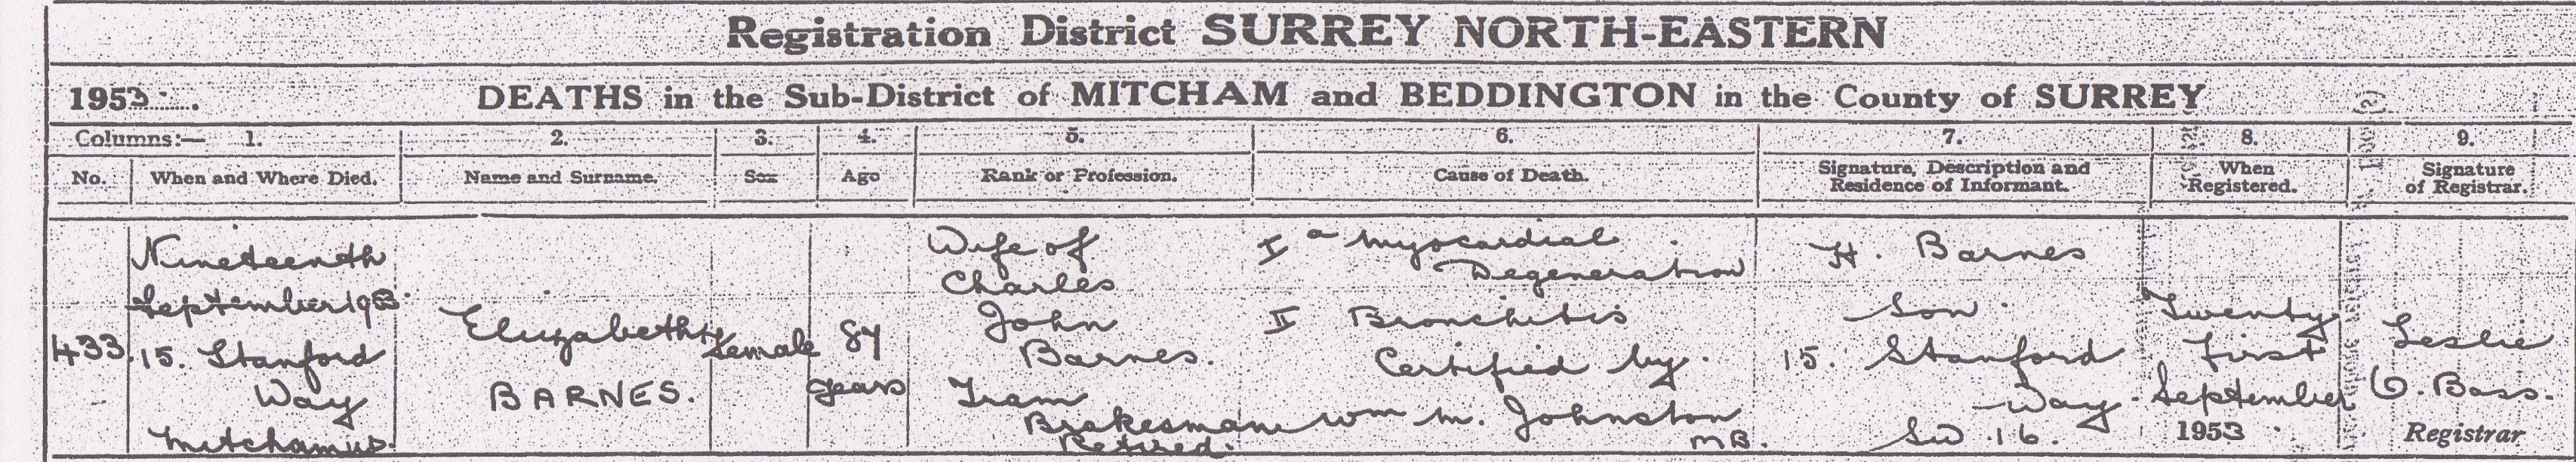 Registration District SURREY NORTH-EASTERN
1953. DEATHS in the Sub-District of MITCHAM and BEDDINGTON in the County of SURREY
Columns:— 1. 2. 3. 4. 5. 6. 7. 8. 9.
No. When and Where Died. Name and Surname. Sex Age Rank or Profession. Cause of Death. Signature, Description and Residence of Informant. When Registered. Signature of Registrar.
433.
Nineteenth
September 1953.
15. Stanford
Way
Mitcham
Elizabeth
BARNES.
Female
84
years
Wife of
Charles
John
Barnes.
Tram
Brakesman
Retired.
I a Myocardial
Degeneration
II Bronchitis
Certified by
Wm M. Johnston
MB.
H. Barnes
Son
15. Stanford
Way
SW 16.
Twenty
first
September
1953
Leslie
Bass.
Registrar